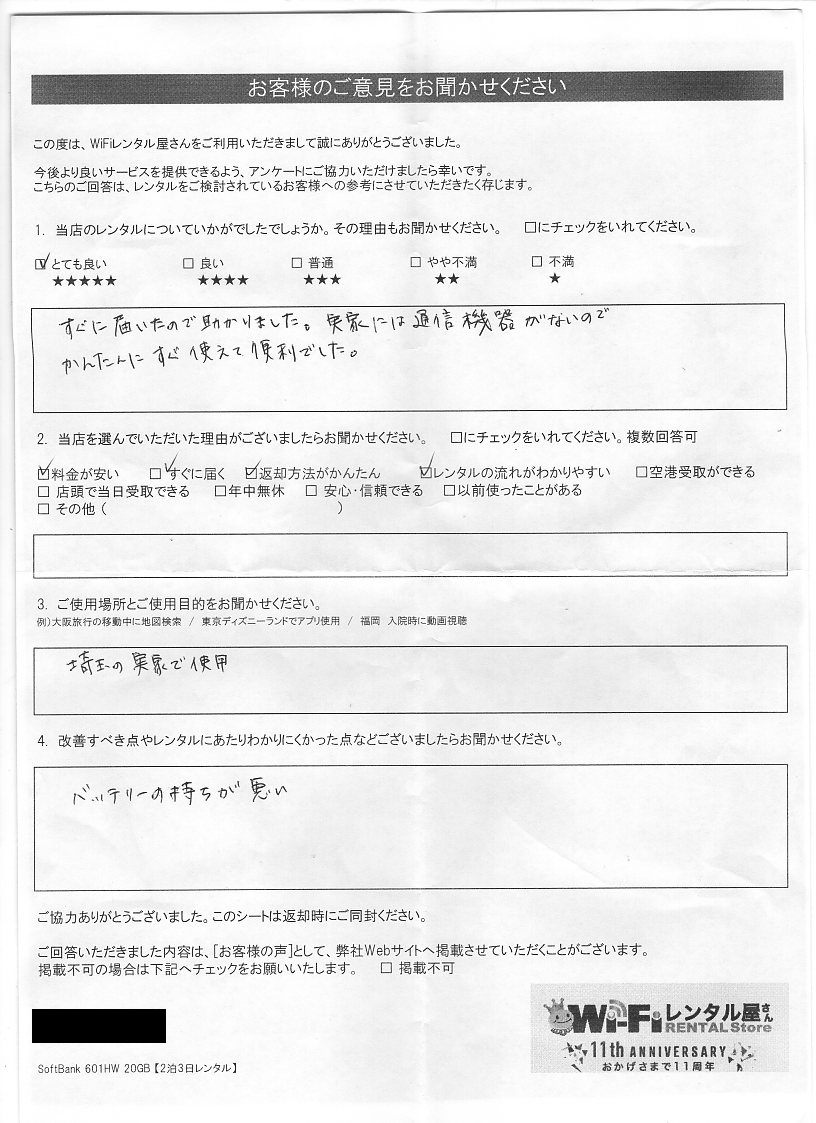 お客様のご意見をお聞かせください
この度は、WiFiレンタル屋さんをご利用いただきまして誠にありがとうございました。
今後より良いサービスを提供できるよう、アンケートにご協力いただけましたら幸いです。
こちらのご回答は、レンタルをご検討されているお客様への参考にさせていただきたく存じます。
1. 当店のレンタルについていかがでしたでしょうか。その理由もお聞かせください。 □にチェックをいれてください。
☑ とても良い □ 良い □ 普通 □ やや不満 □ 不満
★★★★★ ★★★★ ★★★ ★★ ★
すぐに届いたので助かりました。実家には通信機器がないので
かんたんにすぐ使えて便利でした。
2. 当店を選んでいただいた理由がございましたらお聞かせください。 □にチェックをいれてください。複数回答可
☑料金が安い ☑すぐに届く ☑返却方法がかんたん ☑レンタルの流れがわかりやすい □空港受取ができる
□ 店頭で当日受取できる □年中無休 □ 安心・信頼できる □以前使ったことがある
□ その他 ( )
3. ご使用場所とご使用目的をお聞かせください。
例)大阪旅行の移動中に地図検索 / 東京ディズニーランドでアプリ使用 / 福岡 入院時に動画視聴
埼玉の実家で使用
4. 改善すべき点やレンタルにあたりわかりにくかった点などございましたらお聞かせください。
バッテリーの持ちが悪い
ご協力ありがとうございました。このシートは返却時にご同封ください。
ご回答いただきました内容は、[お客様の声]として、弊社Webサイトへ掲載させていただくことがございます。
掲載不可の場合は下記へチェックをお願いいたします。 □ 掲載不可
Wi-Fiレンタル屋さん
RENTAL Store
11th ANNIVERSARY
おかげさまで11周年
SoftBank 601HW 20GB【2泊3日レンタル】